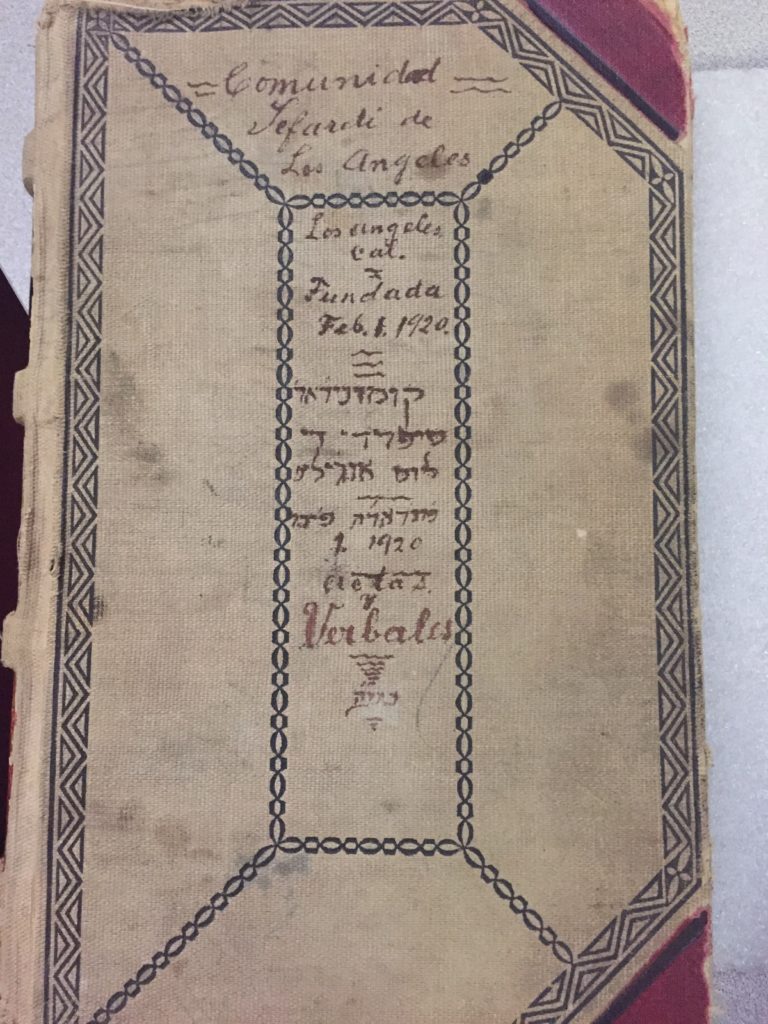 Comunidad
Sefardi de
Los Angeles
Los angeles
cal.
Fundada
Feb. 1. 1920.
קומוניdאד
סיפרדי די
לוס אנג'ילيس
פונדאדה פיב'
1. 1920
actas
y
Verbales